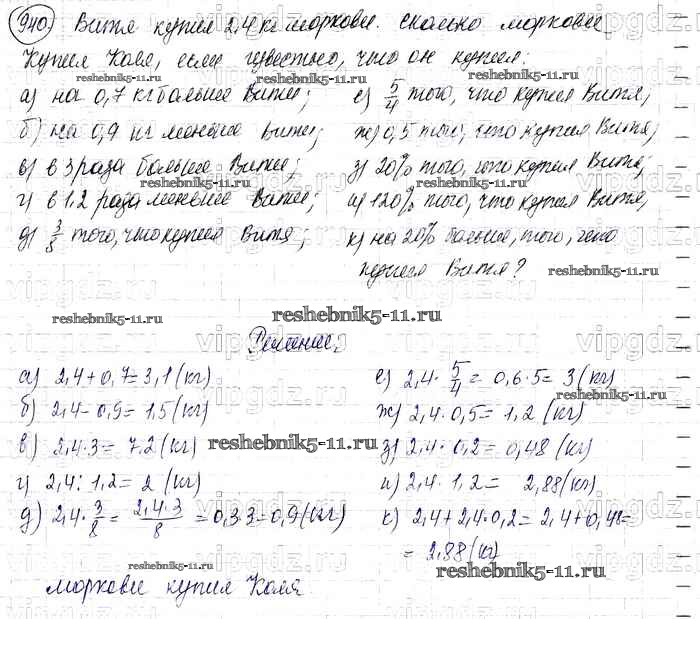 940 Витя купил 2,4 кг моркови. Сколько моркови
купил Коля, если известно, что он купил:
reshebnik5-11.ru reshebnik5-11.ru
а) на 0,7 кг больше Вити; е) 5/4 того, что купил Витя;
б) на 0,9 кг меньше Вити; ж) 0,5 того, что купил Витя;
в) в 3 раза больше Вити; з) 20% того, что купил Витя;
reshebnik5-11.ru reshebnik5-11.ru
г) в 1,2 раза меньше Вити; и) 120% того, что купил Витя,
д) 3/8 того, что купил Витя; к) на 20% больше, того, чего
купил Витя? reshebnik5-11.ru
reshebnik5-11.ru reshebnik5-11.ru
Решение.
а) 2,4+0,7=3,1(кг) е) 2,4·5/4=0,6·5=3(кг)
б) 2,4-0,9=1,5(кг) ж) 2,4·0,5=1,2(кг)
в) 2,4·3=7,2(кг) з) 2,4·0,2=0,48(кг)
reshebnik5-11.ru
г) 2,4:1,2=2(кг) и) 2,4·1,2=2,88(кг)
д) 2,4·3/8=2,4·3/8=0,3·3=0,9(кг) к) 2,4+2,4·0,2=2,4+0,48=
=2,88(кг)
reshebnik5-11.ru
моркови купил Коля
reshebnik5-11.ru
vipgdz.ru